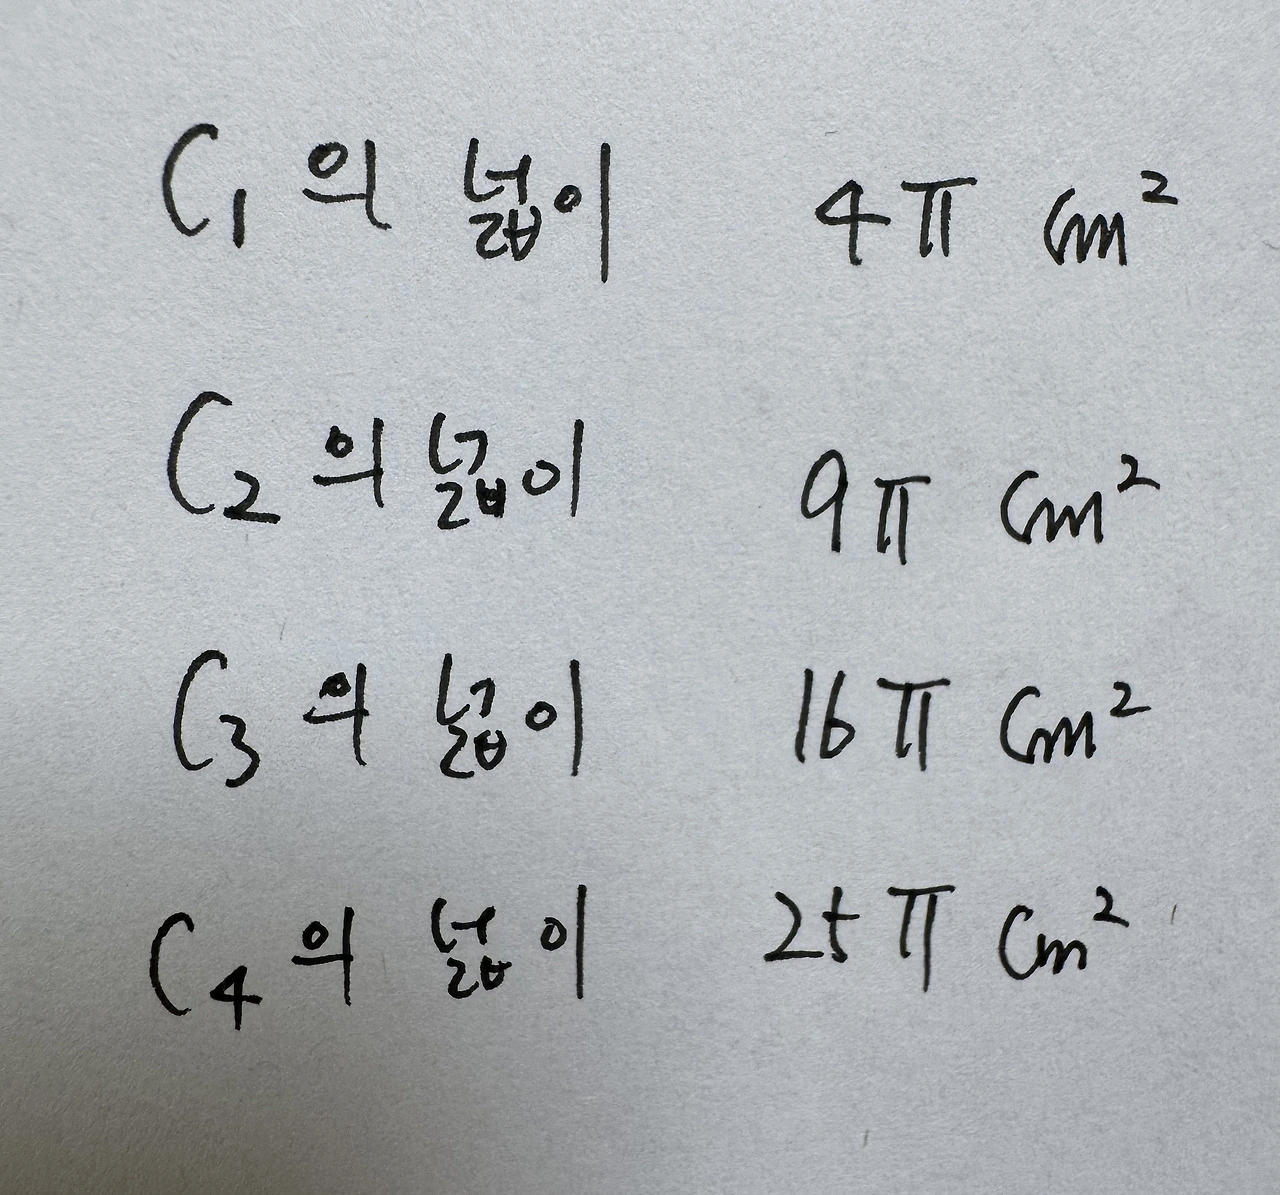 C₁의 넓이 4π cm²
C₂의 넓이 9π cm²
C₃의 넓이 16π cm²
C₄의 넓이 25π cm²